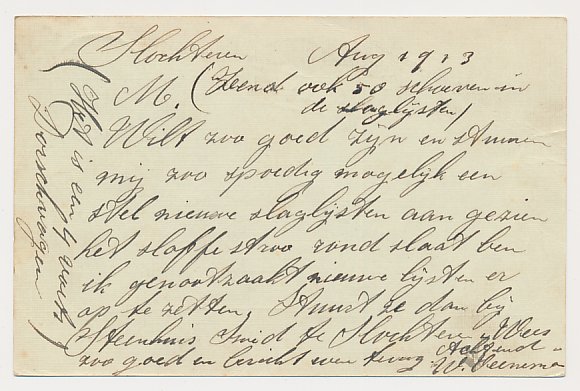 Slochteren Aug 1913
M. (Zend ook 50 schoeven in
de slaglijsten)
Wilt zoo goed zijn en stuuren
mij zoo spoedig mogelijk een
stel nieuwe slaglijsten aan gezien
het sloffe stroo rond slaat ben
ik genootzaakt nieuwe lijsten er
op te zetten. Stuurt ze dan bij
Steenhuis Smid te Slochteren Wees
zoo goed en bericht even terug
Achtend
W Veeneman
(Het is een 4 vaarts
Dorschwagen)